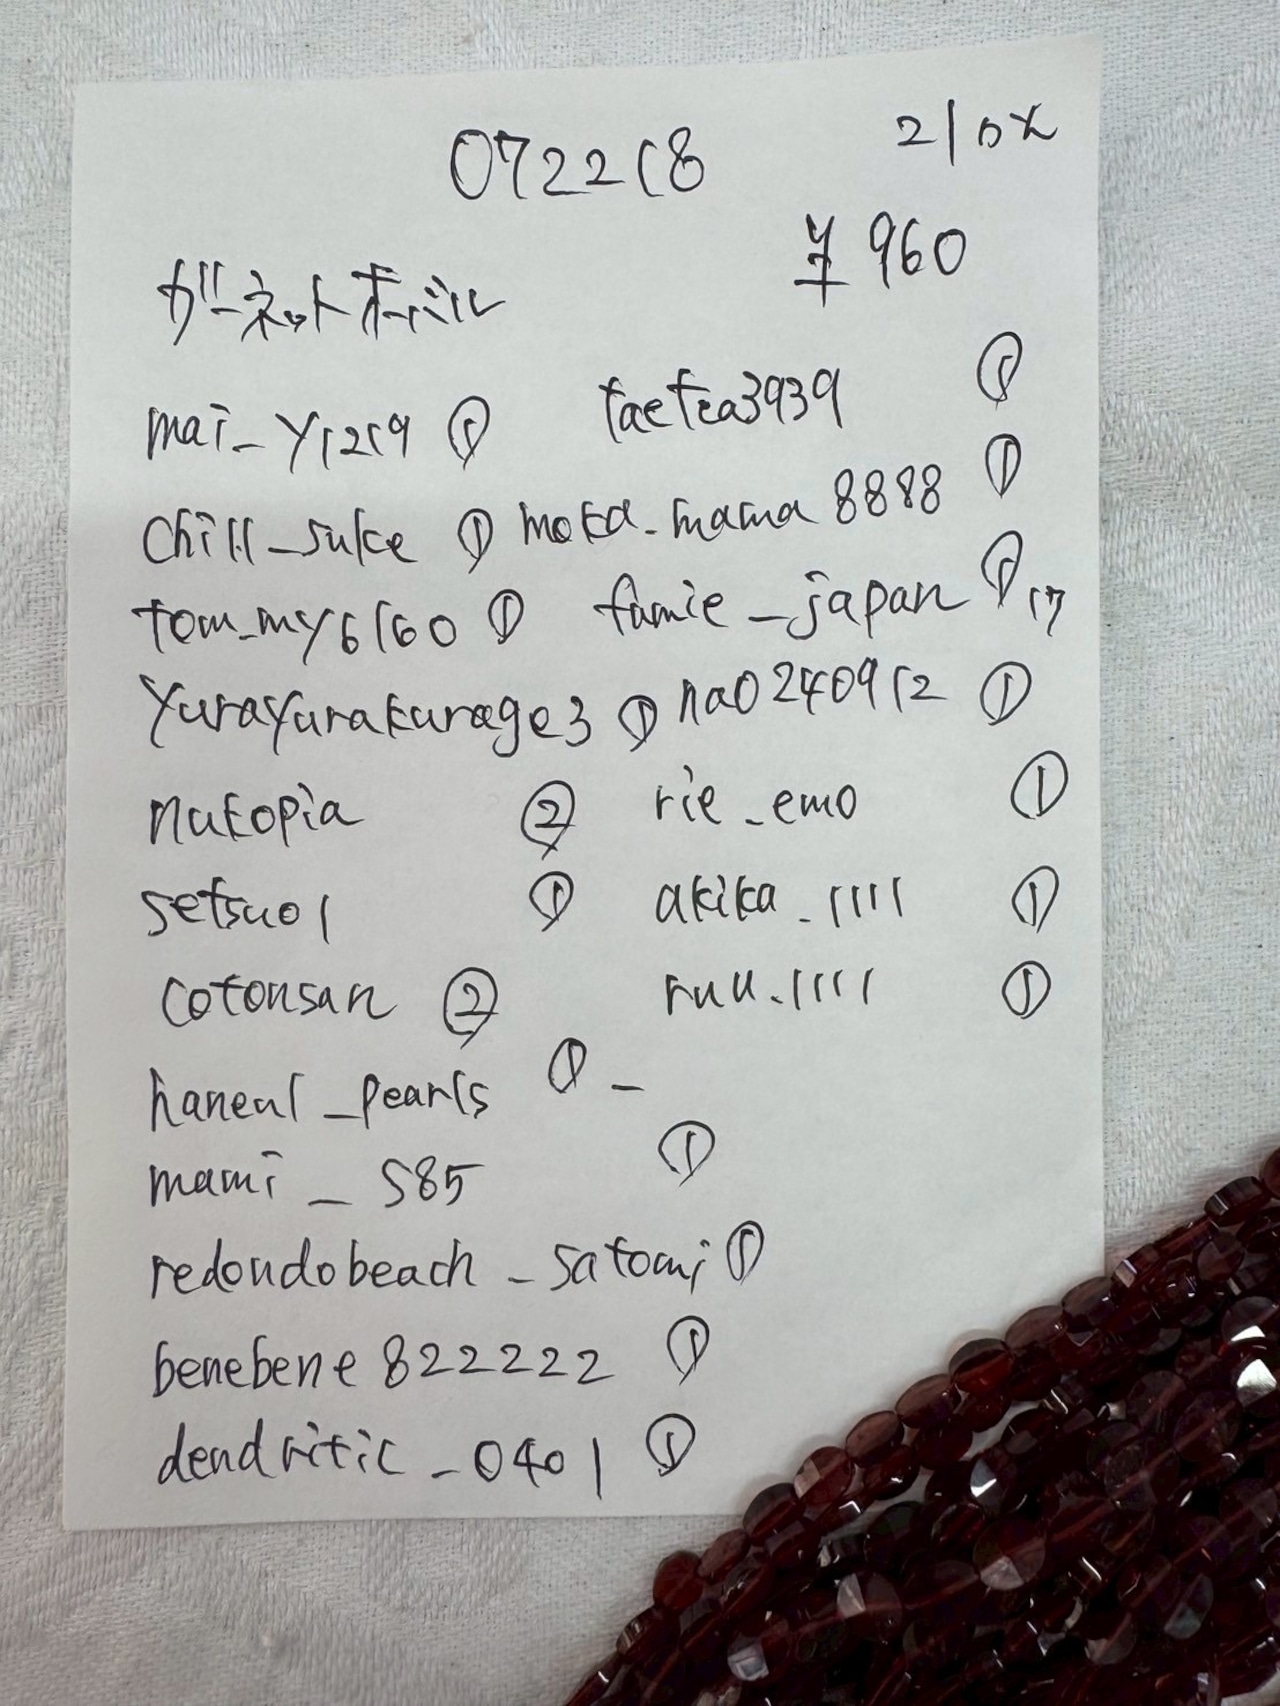 072218
210x
¥960
ガーネットオーバル
mai_y1219 ① taetea3939 ①
chill_suke ① moka_mama8888 ①
tom_my6160 ① fumie_japan ① 17
yurayurakurage3 ① na0240912 ①
nutopia ② rie_emo ①
setsuo1 ① akika_1111 ①
cotonsan ② ruu.1111 ①
haneul_pearls ① –
mami_s85 ①
redondobeach_satomi ①
benebene822222 ①
dendritic_0401 ①